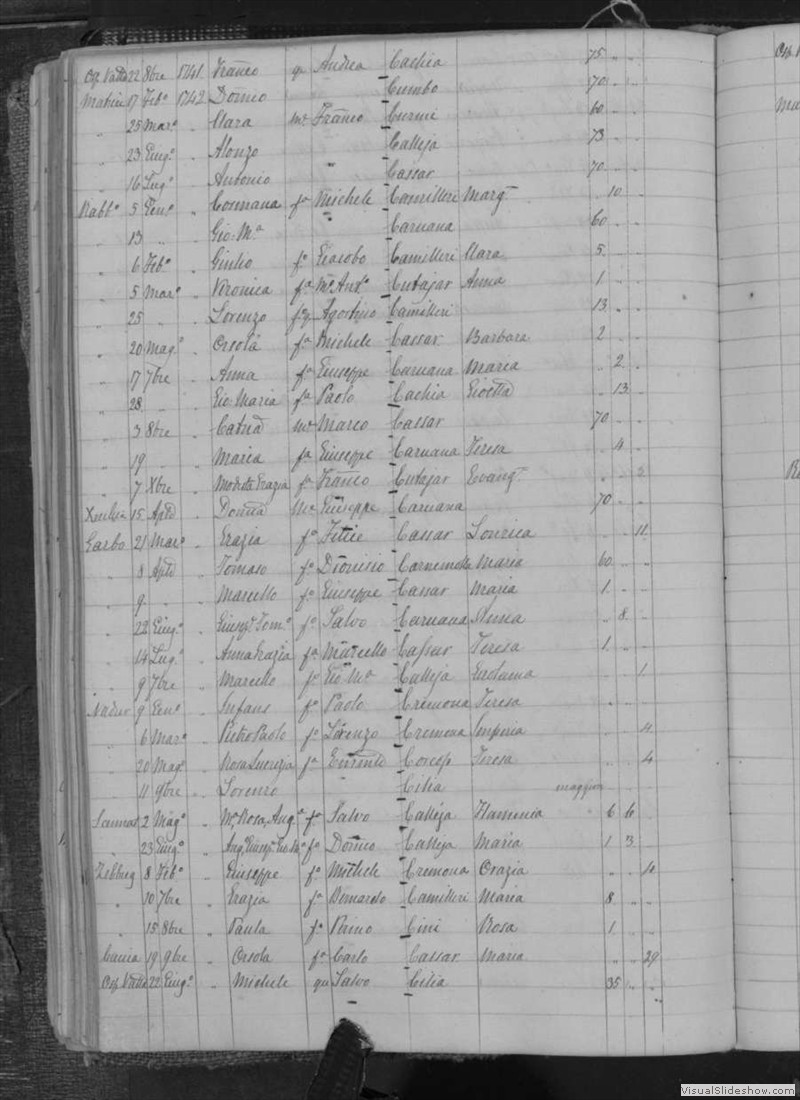 Osp. Vall. 22 8bre 1741. Franco qu Andrea Cachia 75 " "
Matrice 17 Feb° 1742. Domco Cumbo 70 " "
" 25 Mar° " Clara mr Franco Curmi 60 " "
" 23 Giug° " Alonzo Calleja 73 " "
" 16 Lug° " Antonio " Cassar 70 " "
Rabt° 5 Gen° " Cosmana fa Michele Camilleri Margta " 10 "
" 13 " " Gio: Ma " Caruana 60 " "
" 6 Feb° " Giulio f° Giacobo Camilleri Clara 5 " "
" 5 Mar° " Veronica fa Mo Ant° Cutajar Anna 1 " "
" 25 " " Lorenzo fq Agostino Camilleri 13 " "
" 20 Mag° " Orsola fa Michele Cassar Barbara 2 " "
" 17 7bre " Anna fa Giuseppe Caruana Maria " 2 "
" 28 " " Gio Maria fa Paolo Cachia " 13 "
" 3 8bre " Catna mr Marco Cassar 70 " "
" 19 " " Maria fa Giuseppe Caruana Teresa " 4 "
" 7 Xbre " Modesta Grazia fa Franco Cutajar Evangta " " 2
15 Aple " Domca Mr Giuseppe Caruana 70 " "
Garbo 21 Mar° " Grazia fa Felice Cassar " " 11
" 8 Aple " Tomaso f° Dionisio Maria 60 " "
" 9 " " Marcello f° Giuseppe Cassar Maria 1 " "
" 22 Giug° " Giusepe Tom° f° Salvo Caruana Anna " 8 "
" 14 Lug° " Anna Grazia fa Marcello Cassar Teresa 1 " "
" 9 7bre " Marcello f° Gio Ma Calleja Gerolama " " 1
Nadur 9 Gen° " Infans f° Paolo Cremona Teresa " " "
" 6 Mar° " Pietro Paolo f° Lorenzo Cremona Imperia " " 4
" 20 Mag° " Rosa Lucrezia fa Teresa " " 4
" 11 9bre " Lorenzo " Cilia maggiore
Sannat 2 Mag° " Ma Rosa, Anga fa Salvo Calleja Flaminia 6 6 "
" 23 Giug° " f° Domco Calleja Maria 1 3 "
Zebbug 8 Feb° " Giuseppe f° Michele Cremona Orazia " " 10
" 10 7bre " Grazia fa Bernardo Camilleri Maria 8 " "
" 15 8bre " Paula fa Cini Rosa 1 " "
19 9bre " Orsola fa Carlo Cassar Maria " " 29
Osp. Vall. 22 Giug° " Michele qu Salvo Cilia 35 " "
VisualSlideshow.com